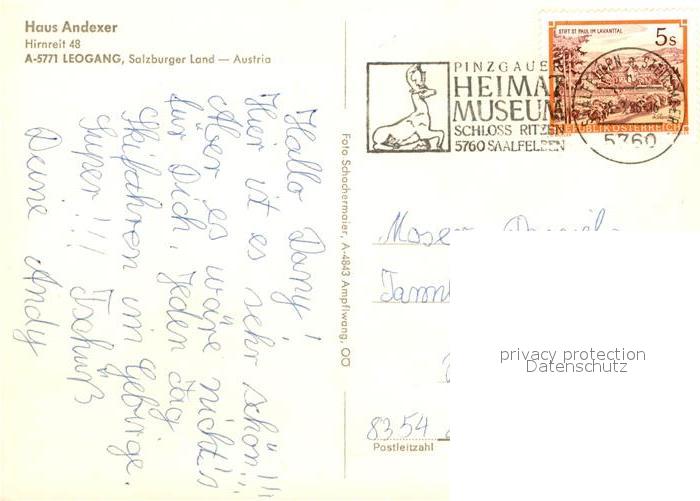 Haus Andexer
Hirnreit 48
A-5771 LEOGANG, Salzburger Land — Austria
Hallo Dany!
Hier ist es sehr schön!!!
Aber es wäre nicht's
für Dich. Jeden Tag
Skifahren im Gebirge.
Super!!! Tschüß
Deine Andy
Foto Schachermaier, A-4843 Ampflwang, OÖ
PINZGAUER
HEIMAT
MUSEUM
SCHLOSS RITZEN
5760 SAALFELDEN
STIFT ST. PAUL IM LAVANTTAL
5s
REPUBLIK ÖSTERREICH
5760
Moser
8354
Postleitzahl
privacy protection
Datenschutz